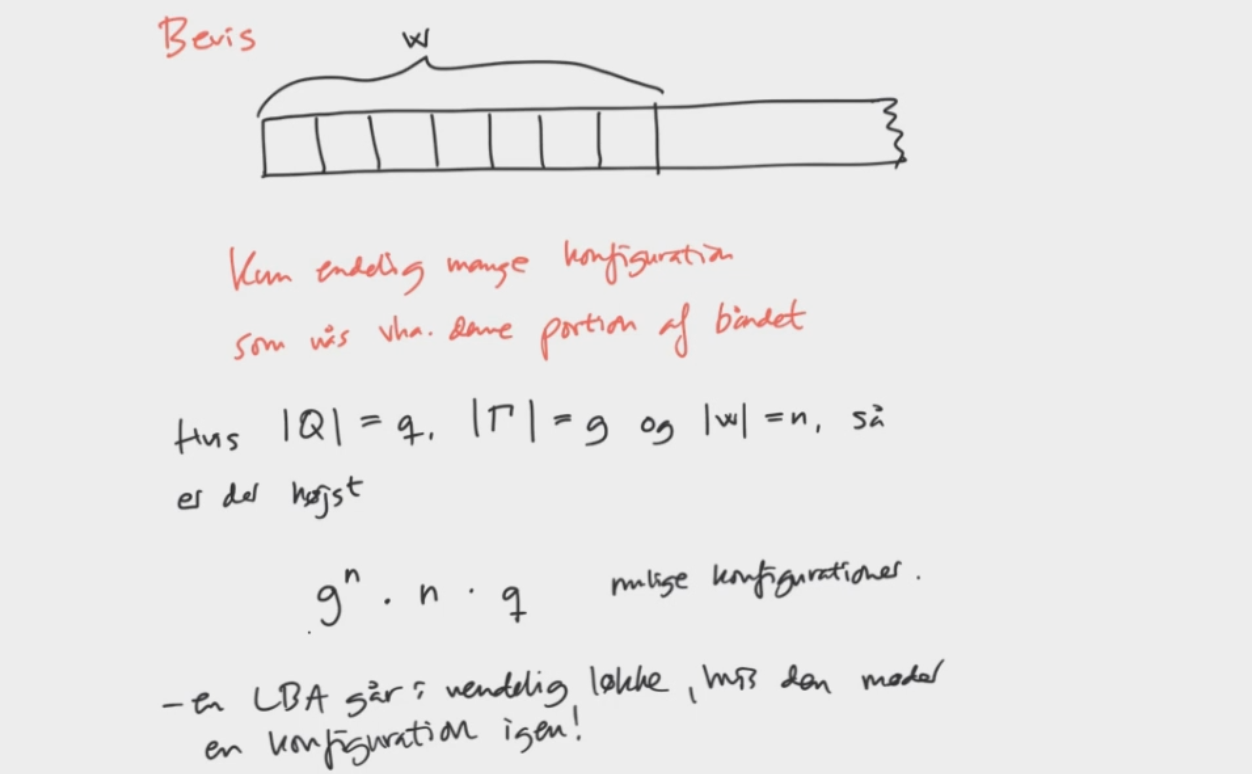 Bevis
w
Kun endelig mange konfiguration
som nås vha. denne portion af båndet
Hvis |Q| = q, |Γ| = g og |w| = n, så
er der højst
gⁿ · n · q mulige konfigurationer.
- en LBA går i uendelig løkke, hvis den møder
en konfiguration igen!